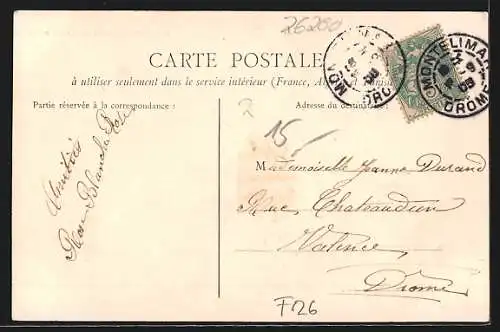 26200
CARTE POSTALE
à utiliser seulement dans le service intérieur (France, Al
Partie réservée à la correspondance :
Adresse du destinataire
MONTELIMAR
DROME
Amitiés
Rose Blanche
15-
Mademoiselle Jeanne Durand
Rue Chateaudun
Valence
Drome
F26